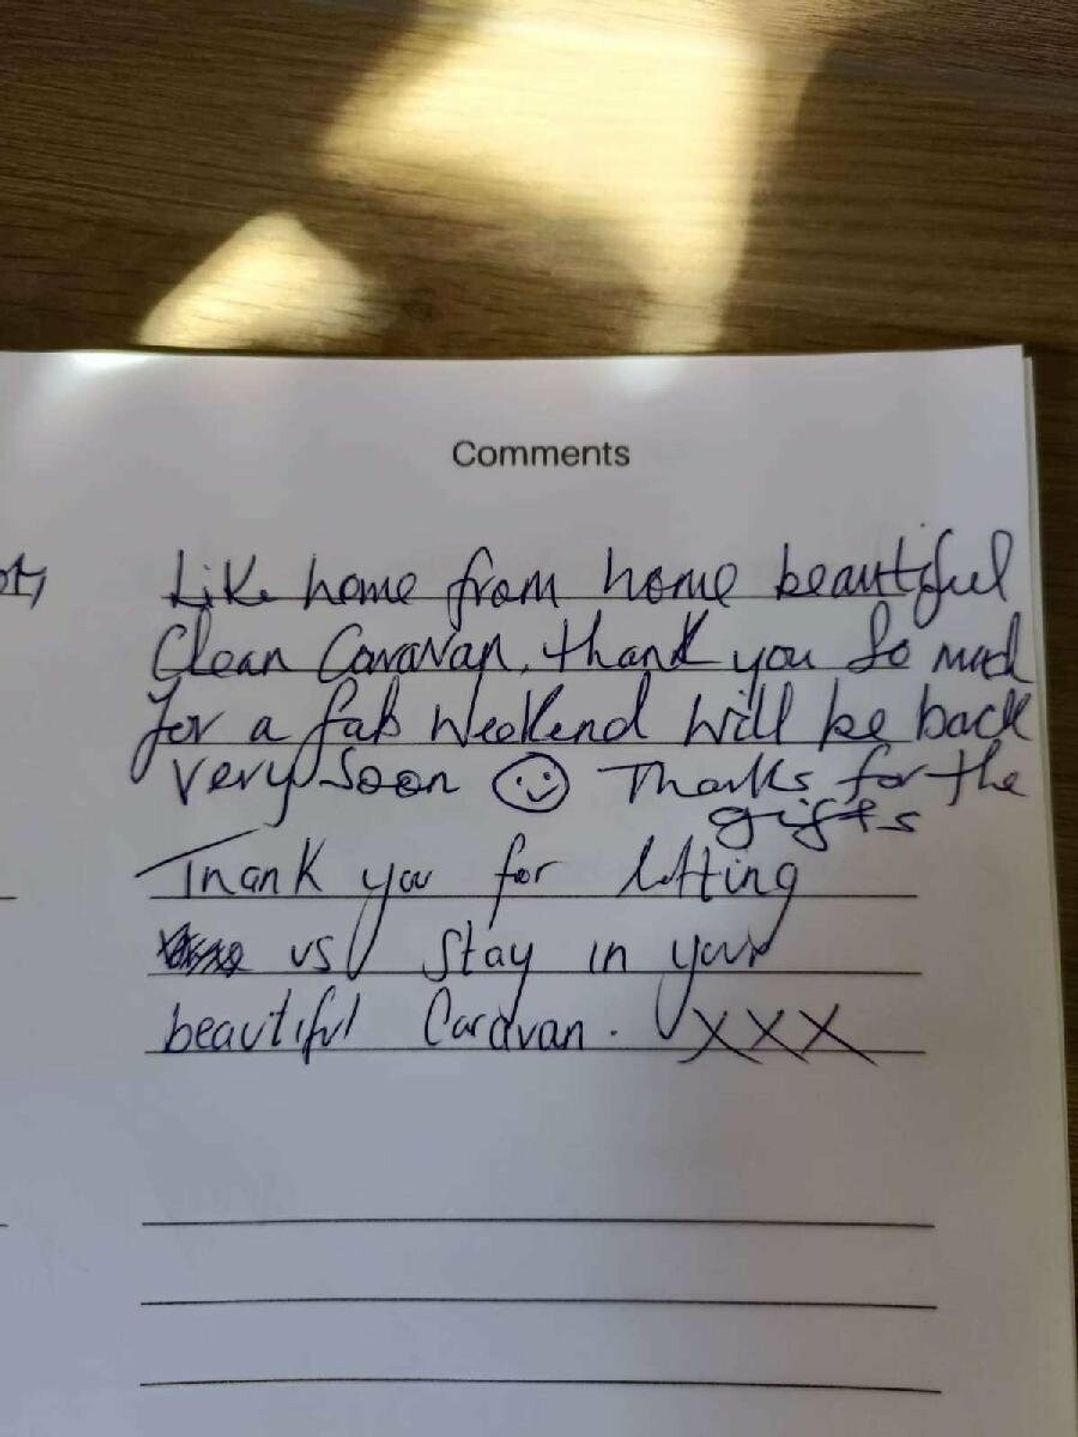 Comments
Like home from home beautiful
Clean Caravan, thank you So much
for a fab weekend will be back
very Soon ☺ Thanks for the
gifts
Thank you for letting
us stay in your
beautiful Caravan. xxx